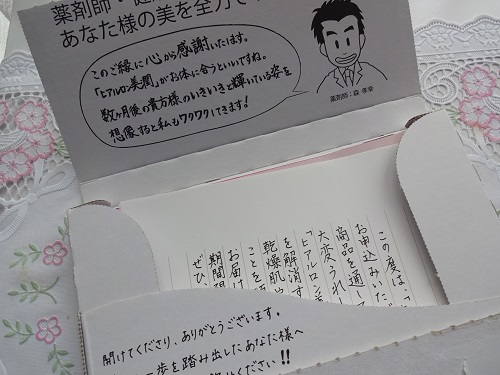 薬剤師・
あなた様の美を全力で
このご縁に心から感謝いたします。
「ヒアルロン美潤」がお体に合うといいですね。
数ヶ月後の貴方様のいきいきと輝いている姿を
想像すると私もワクワクしてきます!
薬剤師:森 孝幸
この度は、「
お申込みいただ
商品を通して
大変うれし
「ヒアルロン美
を解消す
乾燥肌や
ことを
お届け
期間
ぜひ、
開けてくださり、ありがとうございます。
歩を踏み出したあなた様へ
ください!!